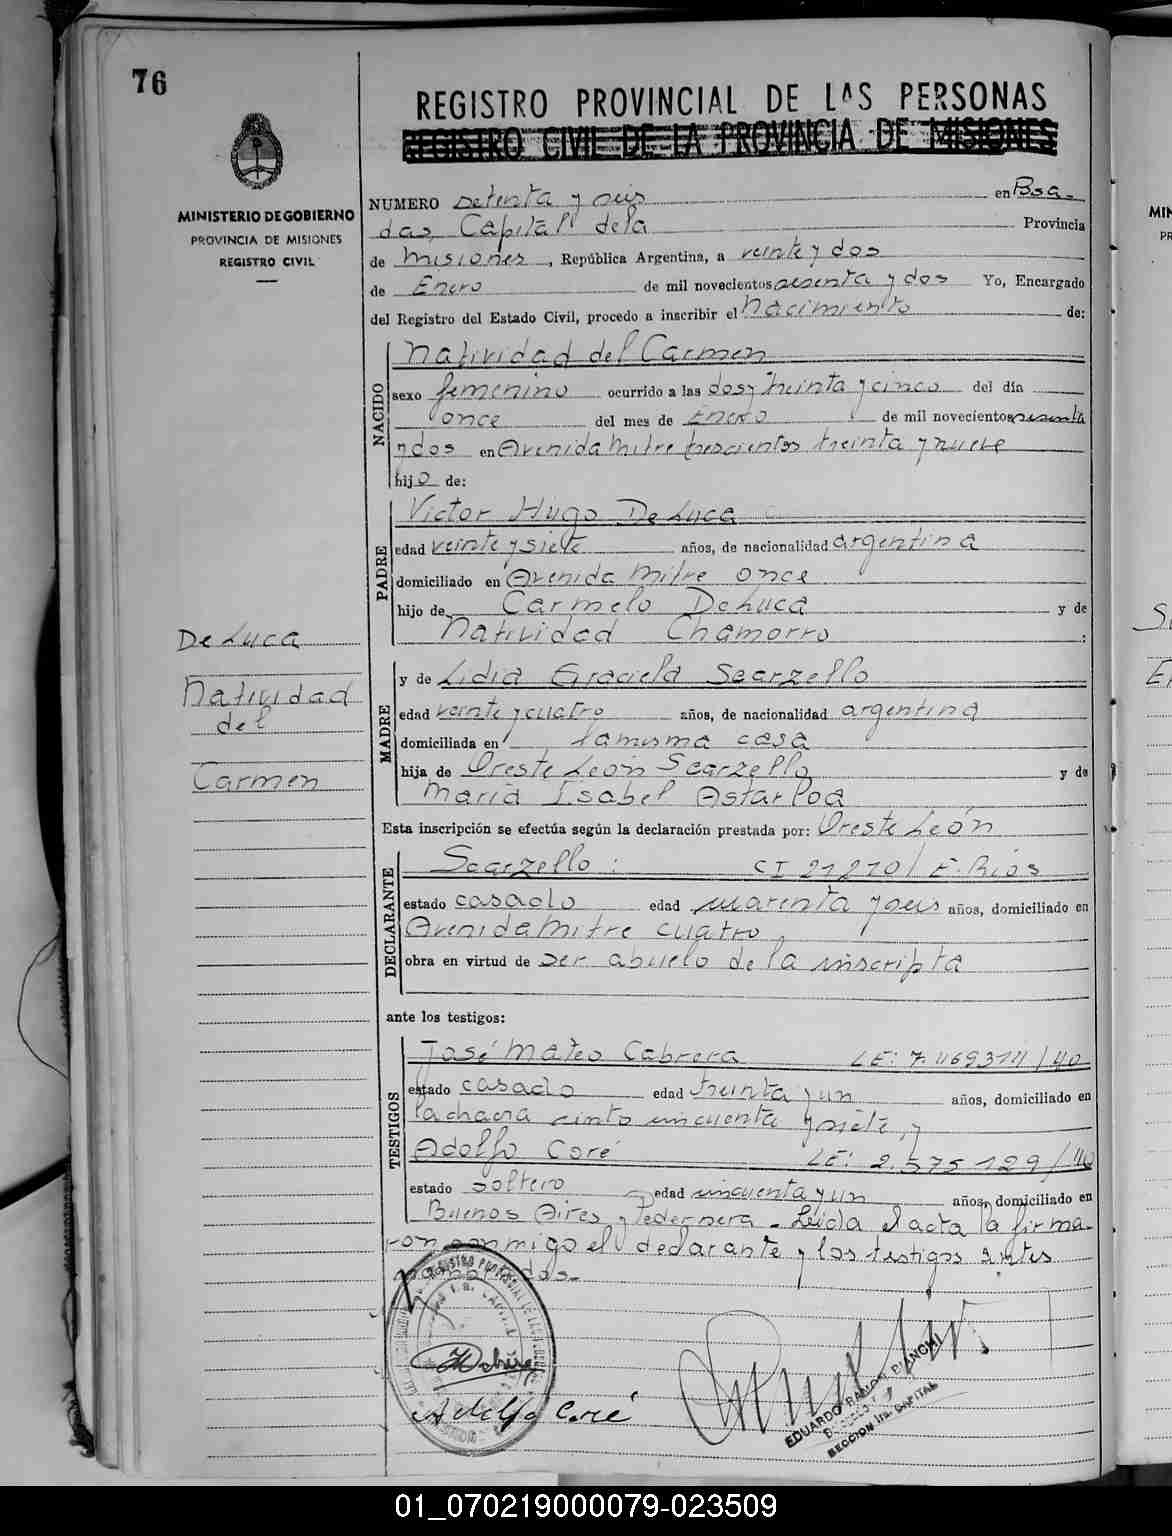 76
REGISTRO PROVINCIAL DE LAS PERSONAS
REGISTRO CIVIL DE LA PROVINCIA DE MISIONES
MINISTERIO DE GOBIERNO
PROVINCIA DE MISIONES
REGISTRO CIVIL
NUMERO setenta y seis en Posa-
das, Capital de la Provincia
de Misiones, República Argentina, a veinte y dos
de Enero de mil novecientos sesenta y dos Yo, Encargado
del Registro del Estado Civil, procedo a inscribir el Nacimiento de:
NACIDO
Natividad del Carmen
sexo femenino ocurrido a las dos y treinta y cinco del día
once del mes de Enero de mil novecientos sesenta
y dos en Avenida Mitre trescientos treinta y nueve
hijo de:
PADRE
Victor Hugo De Luca
edad veinte y siete años, de nacionalidad argentina
domiciliado en Avenida Mitre once
hijo de Carmelo De Luca y de
Natividad Chamorro :
De Luca
Natividad
del
Carmen
MADRE
y de Lidia Graciela Scarzello
edad veinte y cuatro años, de nacionalidad argentina
domiciliada en la misma casa
hija de Oreste León Scarzello y de
María Isabel Astarloa
Esta inscripción se efectúa según la declaración prestada por: Oreste León
DECLARANTE
Scarzello : CI 21210/ E. Ríos
estado casado edad cuarenta y seis años, domiciliado en
Avenida Mitre cuatro
obra en virtud de ser abuelo de la inscripta
ante los testigos:
TESTIGOS
José Mateo Cabrera LE: /40
estado casado edad treinta y un años, domiciliado en
la chacra ciento cincuenta y siete, y
Adolfo Coré LE: 2.575.129/
estado soltero edad cincuenta y un años, domiciliado en
Buenos Aires y Pedernera - Leida el acta la firma-
ron conmigo el declarante y los testigos antes
Adolfo Coré
EDUARDO RAMON BIANCHI
SECCION 1ra. CAPITAL
01_070219000079-023509